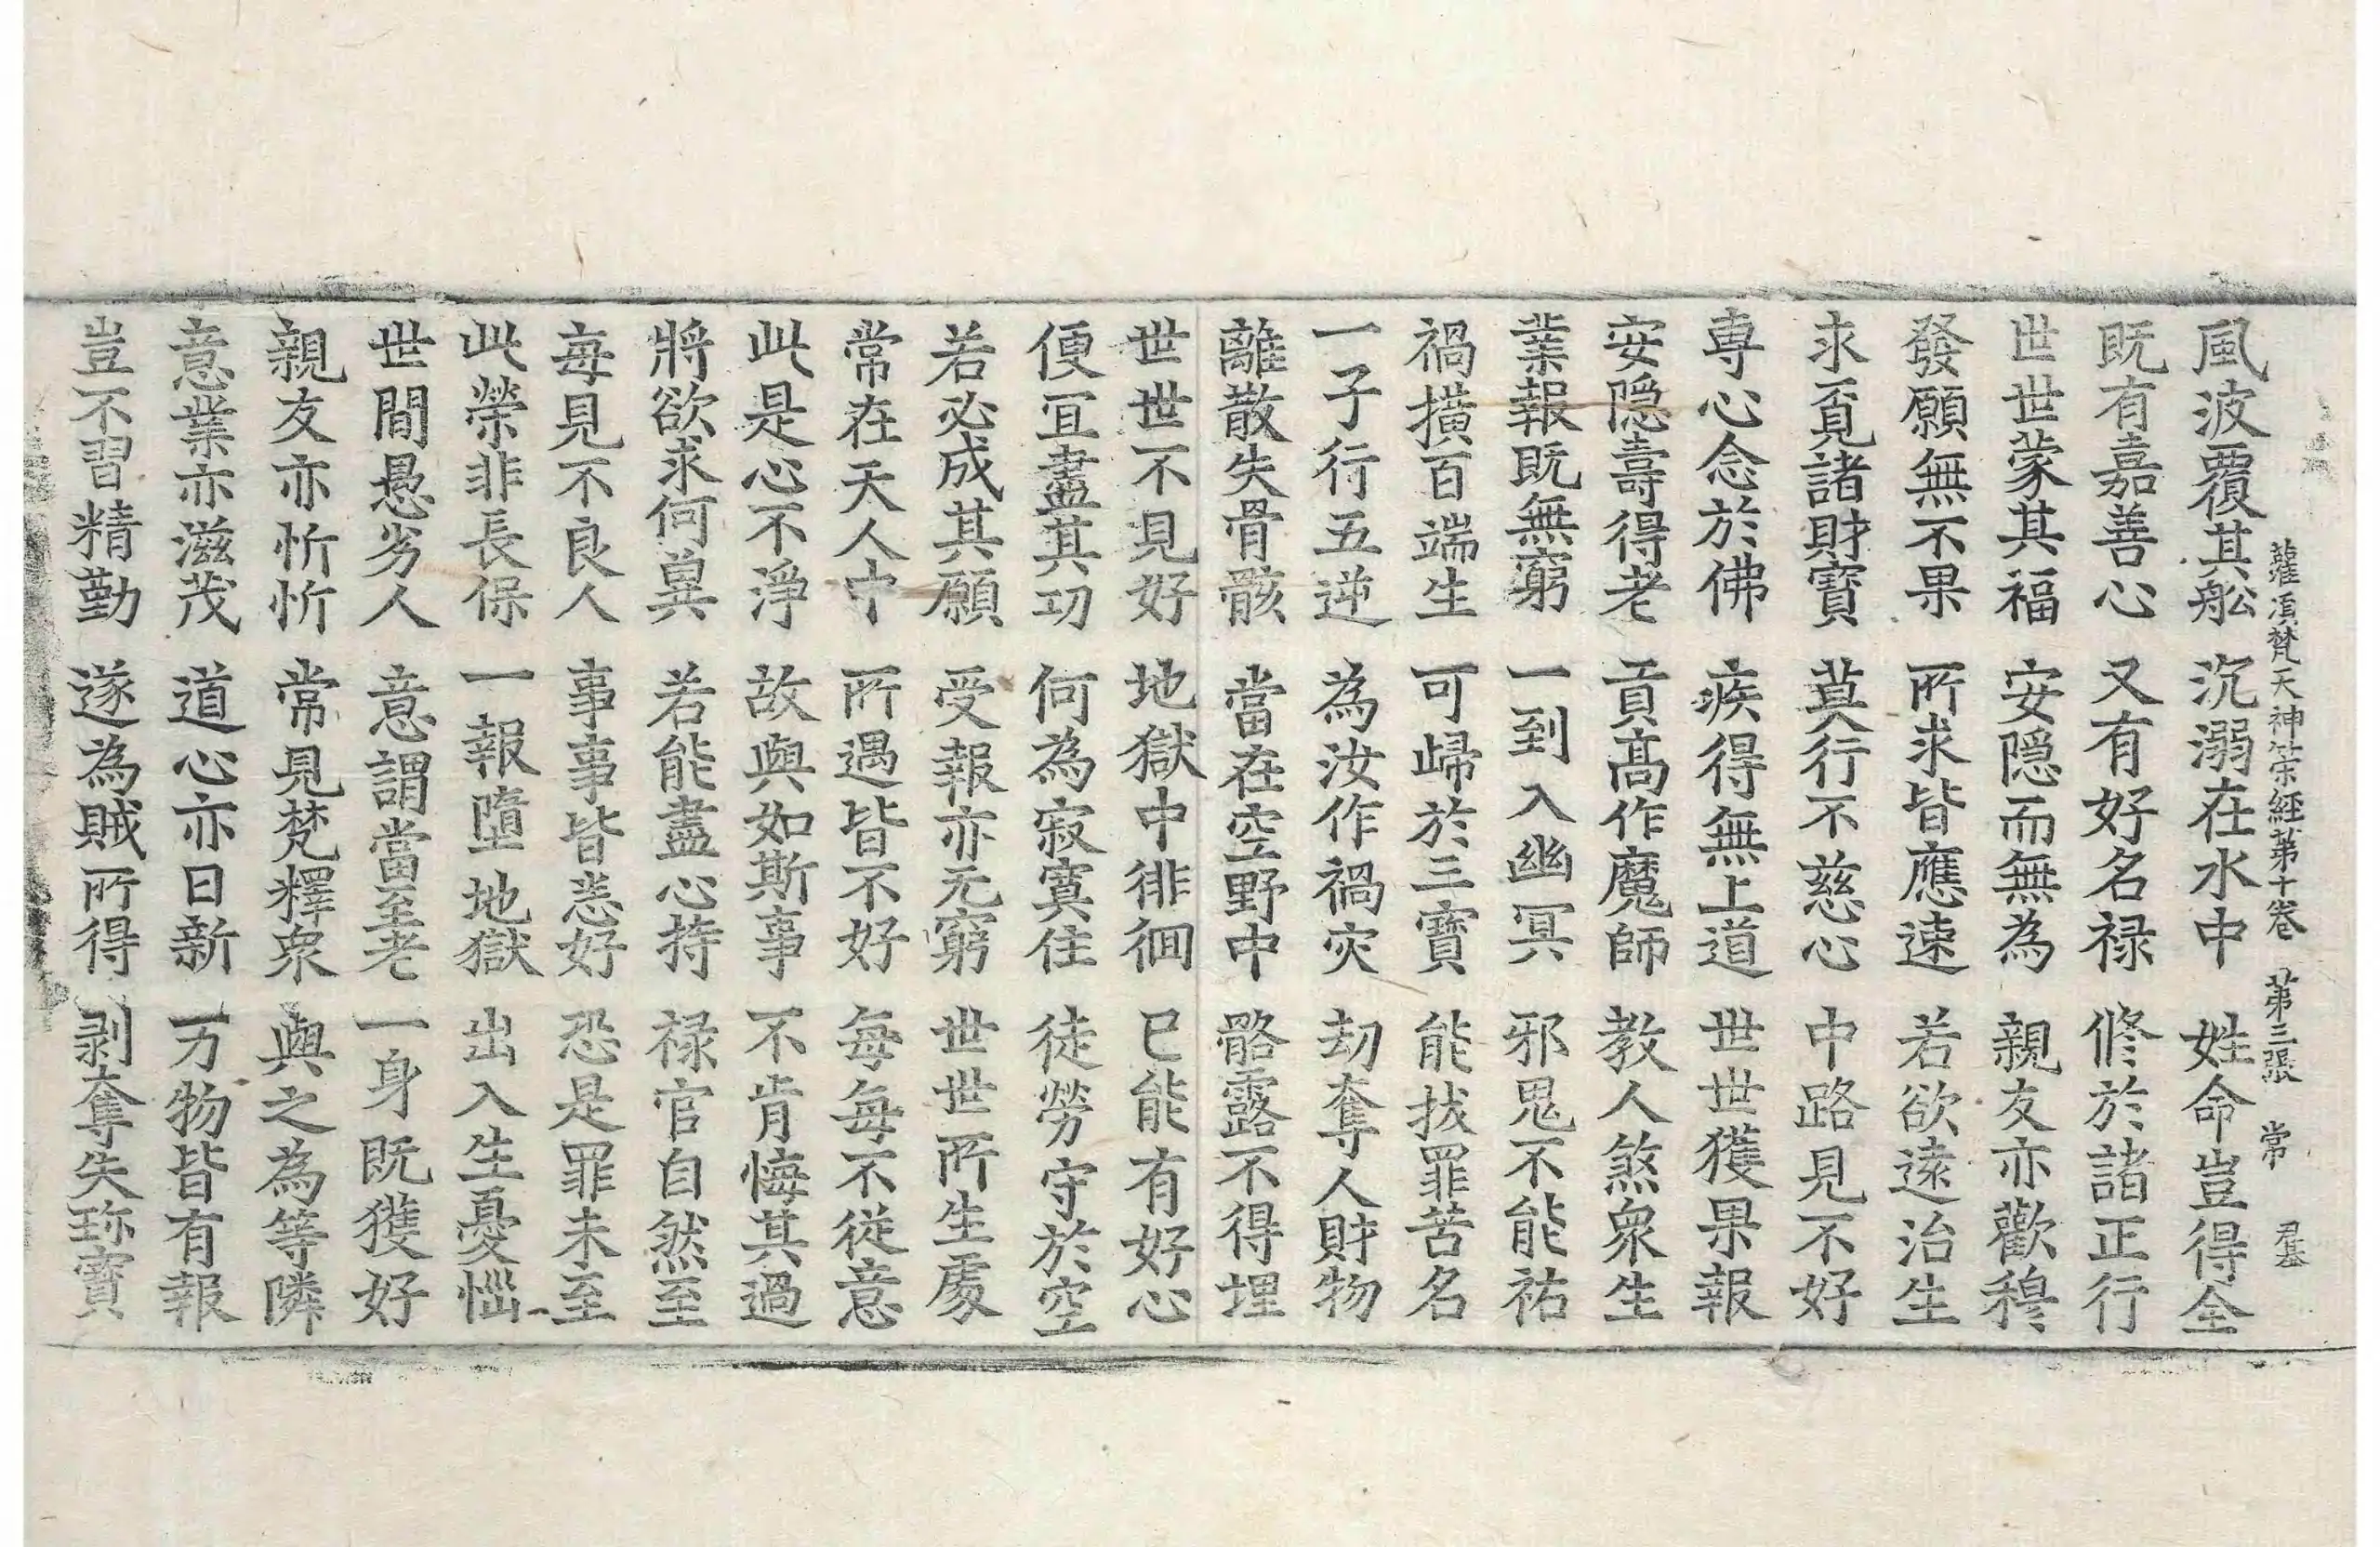 灌頂梵天神筞經第十卷 第三張 常 君基
風波覆其舩 沉溺在水中 姓命豈得全
既有嘉善心 又有好名禄 修於諸正行
世世蒙其福 安隱而無為 親友亦歡穆
發願無不果 所求皆應速 若欲遠治生
求覓諸財寶 莫行不慈心 中路見不好
專心念於佛 疾得無上道 世世獲果報
安隱壽得老 貢高作魔師 教人煞衆生
業報既無窮 一到入幽冥 邪鬼不能祐
禍撗百端生 可歸於三寶 能拔罪苦名
一子行五逆 為汝作禍灾 刧奪人財物
離散失骨骸 當在空野中 骼露不得埋
世世不見好 地獄中徘徊 已能有好心
便宜盡其功 何為寂寞住 徒勞守於空
若必成其願 受報亦无窮 世世所生處
常在天人中 所遇皆不好 每每不從意
此是心不淨 故與如斯事 不肯悔其過
將欲求何異 若能盡心持 禄官自然至
每見不良人 事事皆恙好 恐是罪未至
此榮非長保 一報墮地獄 出入生憂惱
世間愚劣人 意謂當至老 一身既獲好
親友亦忻忻 常見梵釋衆 與之為等隣
意業亦滋茂 道心亦日新 一万物皆有報
豈不習精勤 遂為賊所得 剥奪失珎寶